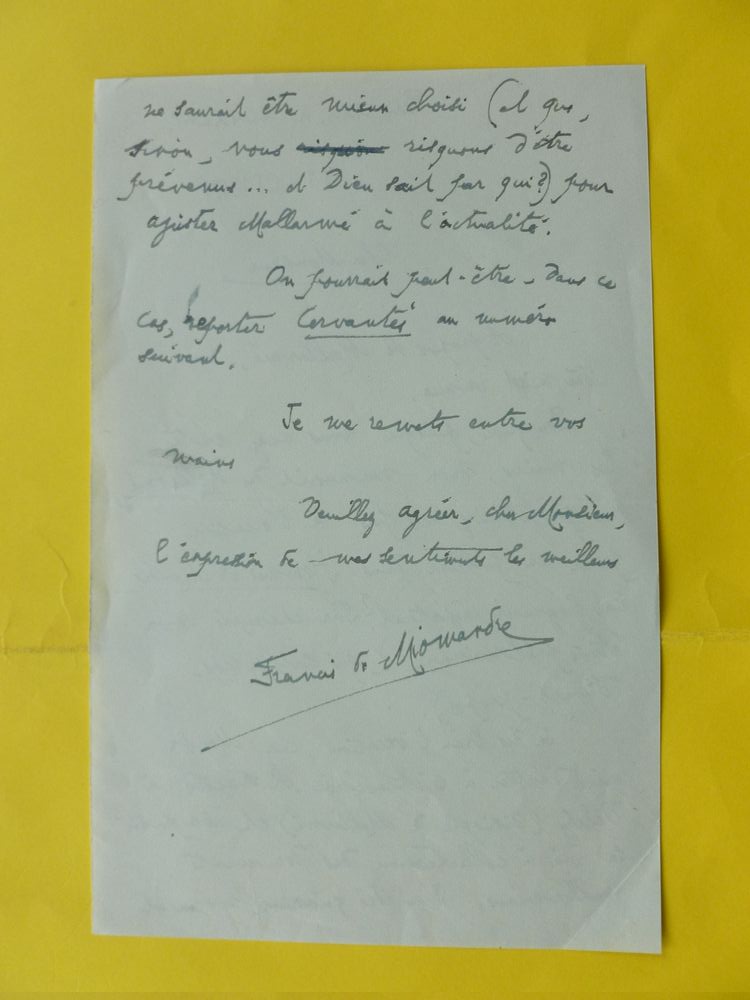 ne saurait être mieux choisi (et que,
sinon, vous risquons d'être
prévenus... et Dieu sait par qui?) pour
ajuster Mallarmé à l'actualité.
On pourrait peut-être, dans ce
cas, reporter Cervantès au numéro
suivant.
Je me remets entre vos
mains
Veuillez agréer, cher Monsieur,
l'expression de mes sentiments les meilleurs
Francis de Miomandre